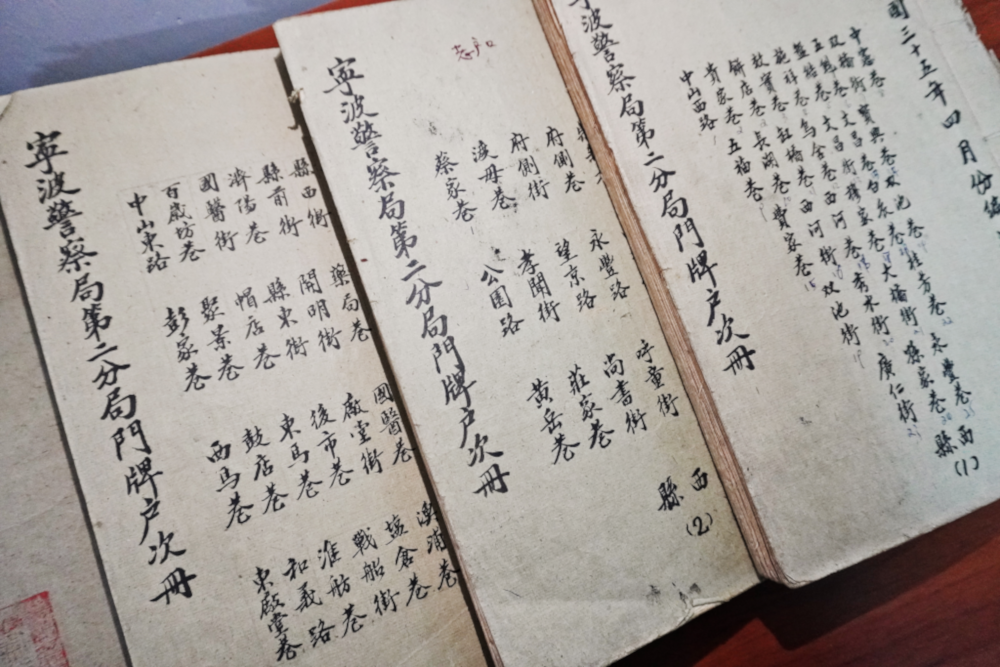 國三十五年四月份編
中憲巷 寶興巷 雙池巷 桂芳巷 永豐巷
双橋街 文昌巷 白衣巷 大橋街 孫家巷
五魁巷 文昌街 穆家巷 秀水街 廣仁街
盤詰巷 烏含巷 西河巷
施祥巷 缸橋巷 西河街 双池街
長湖巷 費家巷
餅店巷 五福巷
中山西路
波警察局第二分局門牌户次冊
西縣(1)
户口
永豐路 呼童街
府側巷 望京路 尚書街
府側街 孝聞街 莊家巷
渡母巷 公園路 黃岳巷
蔡家巷
寧波警察局第二分局門牌户次冊
西縣(2)
藥局巷 國醫巷
縣西街 開明街 廠堂街 鹽倉巷
縣前街 縣東街 後市巷 戰船街
濟陽巷 帽店巷 東馬巷 淮舫巷
國醫街 聚景巷 鼓店巷 和義路
百歲坊巷 彭家巷 西馬巷 東殿堂巷
中山東路
寧波警察局第二分局門牌户次冊